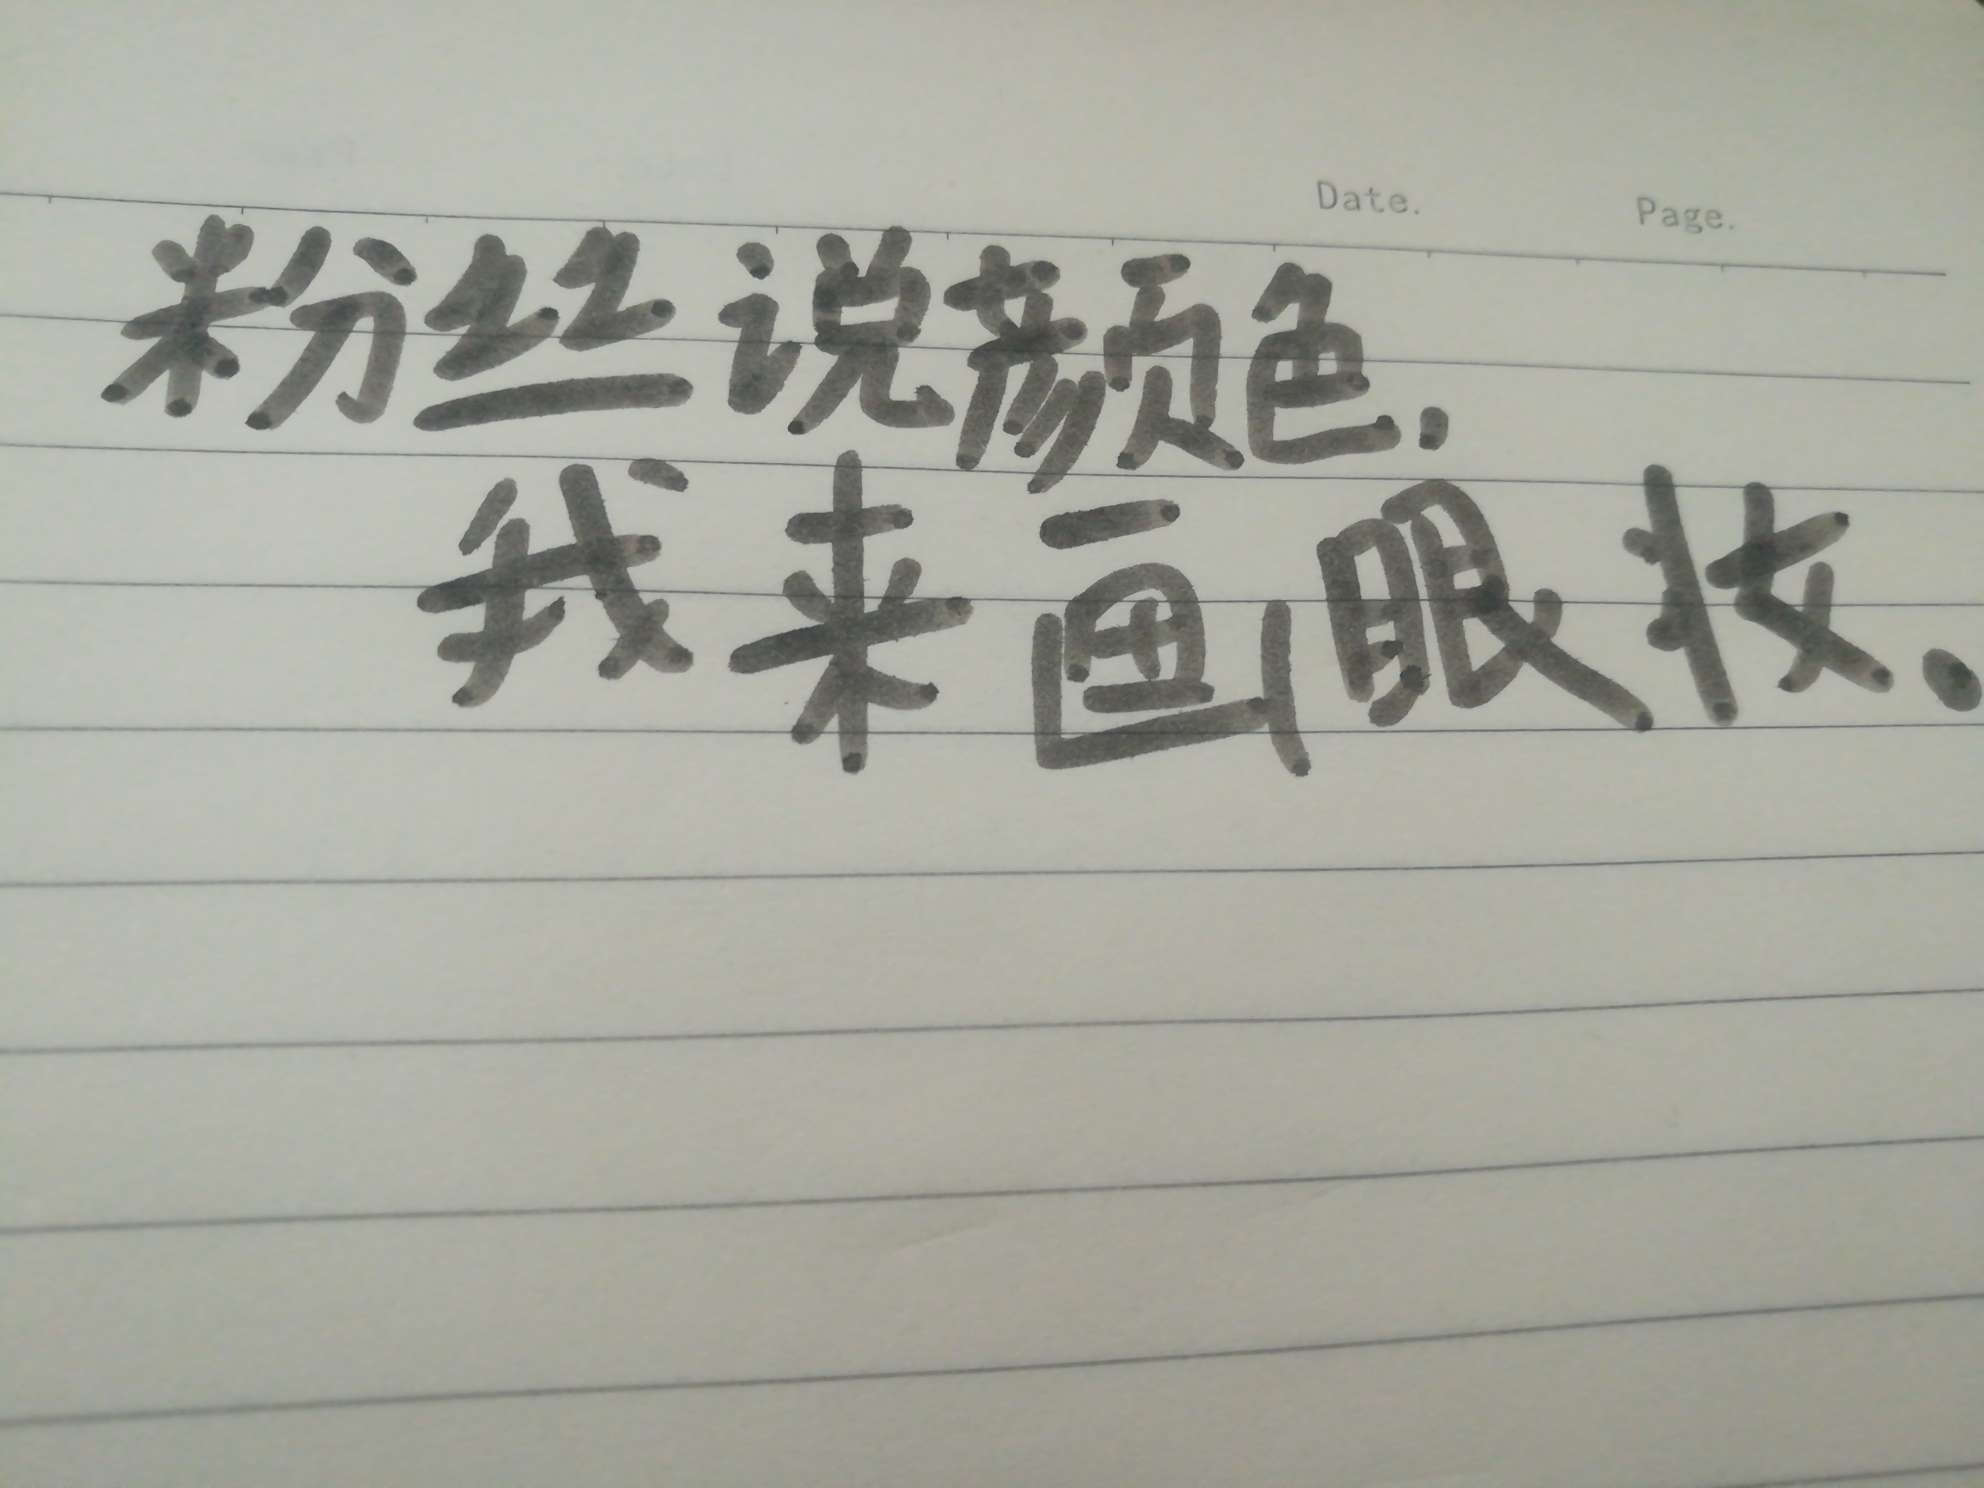 Date. Page.
粉丝说颜色.
我来画眼妆.